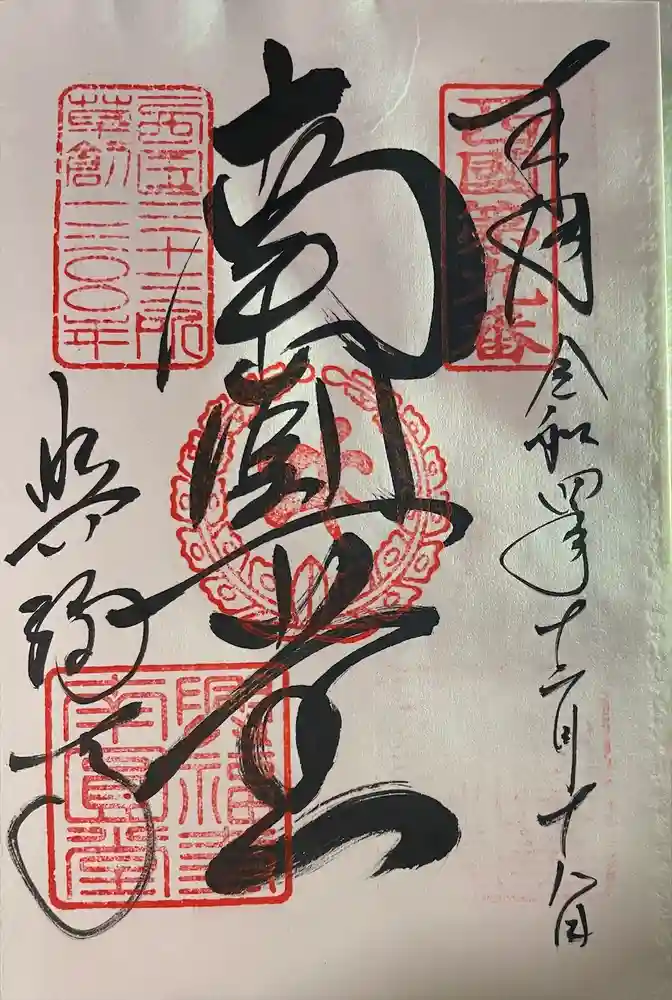 奉拝 令和四年十二月十八日
西國第九番
南圓堂
西国三十三所
草創一三〇〇年
興福寺
興福寺
南圓堂